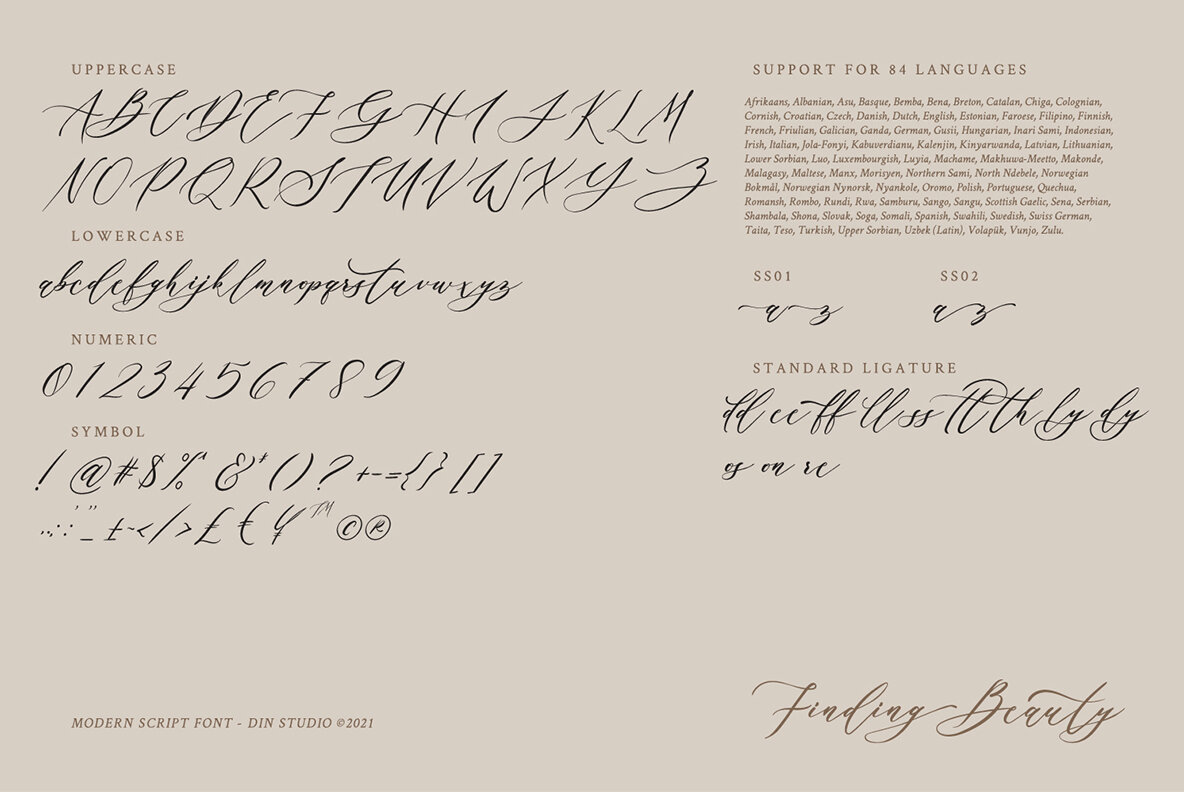 UPPERCASE
A B C D E F G H I J K L M
N O P Q R S T U V W X Y Z
LOWERCASE
abcdefghijklmnopqrstuvwxyz
NUMERIC
0123456789
SYMBOL
! @ # $ % ^ & * ( ) ? + - = { } [ ]
. , : ; ' " _ ± ~ < / > £ € ¥ ™ © ®
MODERN SCRIPT FONT - DIN STUDIO ©2021
SUPPORT FOR 84 LANGUAGES
Afrikaans, Albanian, Asu, Basque, Bemba, Bena, Breton, Catalan, Chiga, Colognian,
Cornish, Croatian, Czech, Danish, Dutch, English, Estonian, Faroese, Filipino, Finnish,
French, Friulian, Galician, Ganda, German, Gusii, Hungarian, Inari Sami, Indonesian,
Irish, Italian, Jola-Fonyi, Kabuverdianu, Kalenjin, Kinyarwanda, Latvian, Lithuanian,
Lower Sorbian, Luo, Luxembourgish, Luyia, Machame, Makhuwa-Meetto, Makonde,
Malagasy, Maltese, Manx, Morisyen, Northern Sami, North Ndebele, Norwegian
Bokmål, Norwegian Nynorsk, Nyankole, Oromo, Polish, Portuguese, Quechua,
Romansh, Rombo, Rundi, Rwa, Samburu, Sango, Sangu, Scottish Gaelic, Sena, Serbian,
Shambala, Shona, Slovak, Soga, Somali, Spanish, Swahili, Swedish, Swiss German,
Taita, Teso, Turkish, Upper Sorbian, Uzbek (Latin), Volapük, Vunjo, Zulu.
SS01 SS02
a z a z
STANDARD LIGATURE
dd ee ff ll ss tt th ly dy
os on re
Finding Beauty